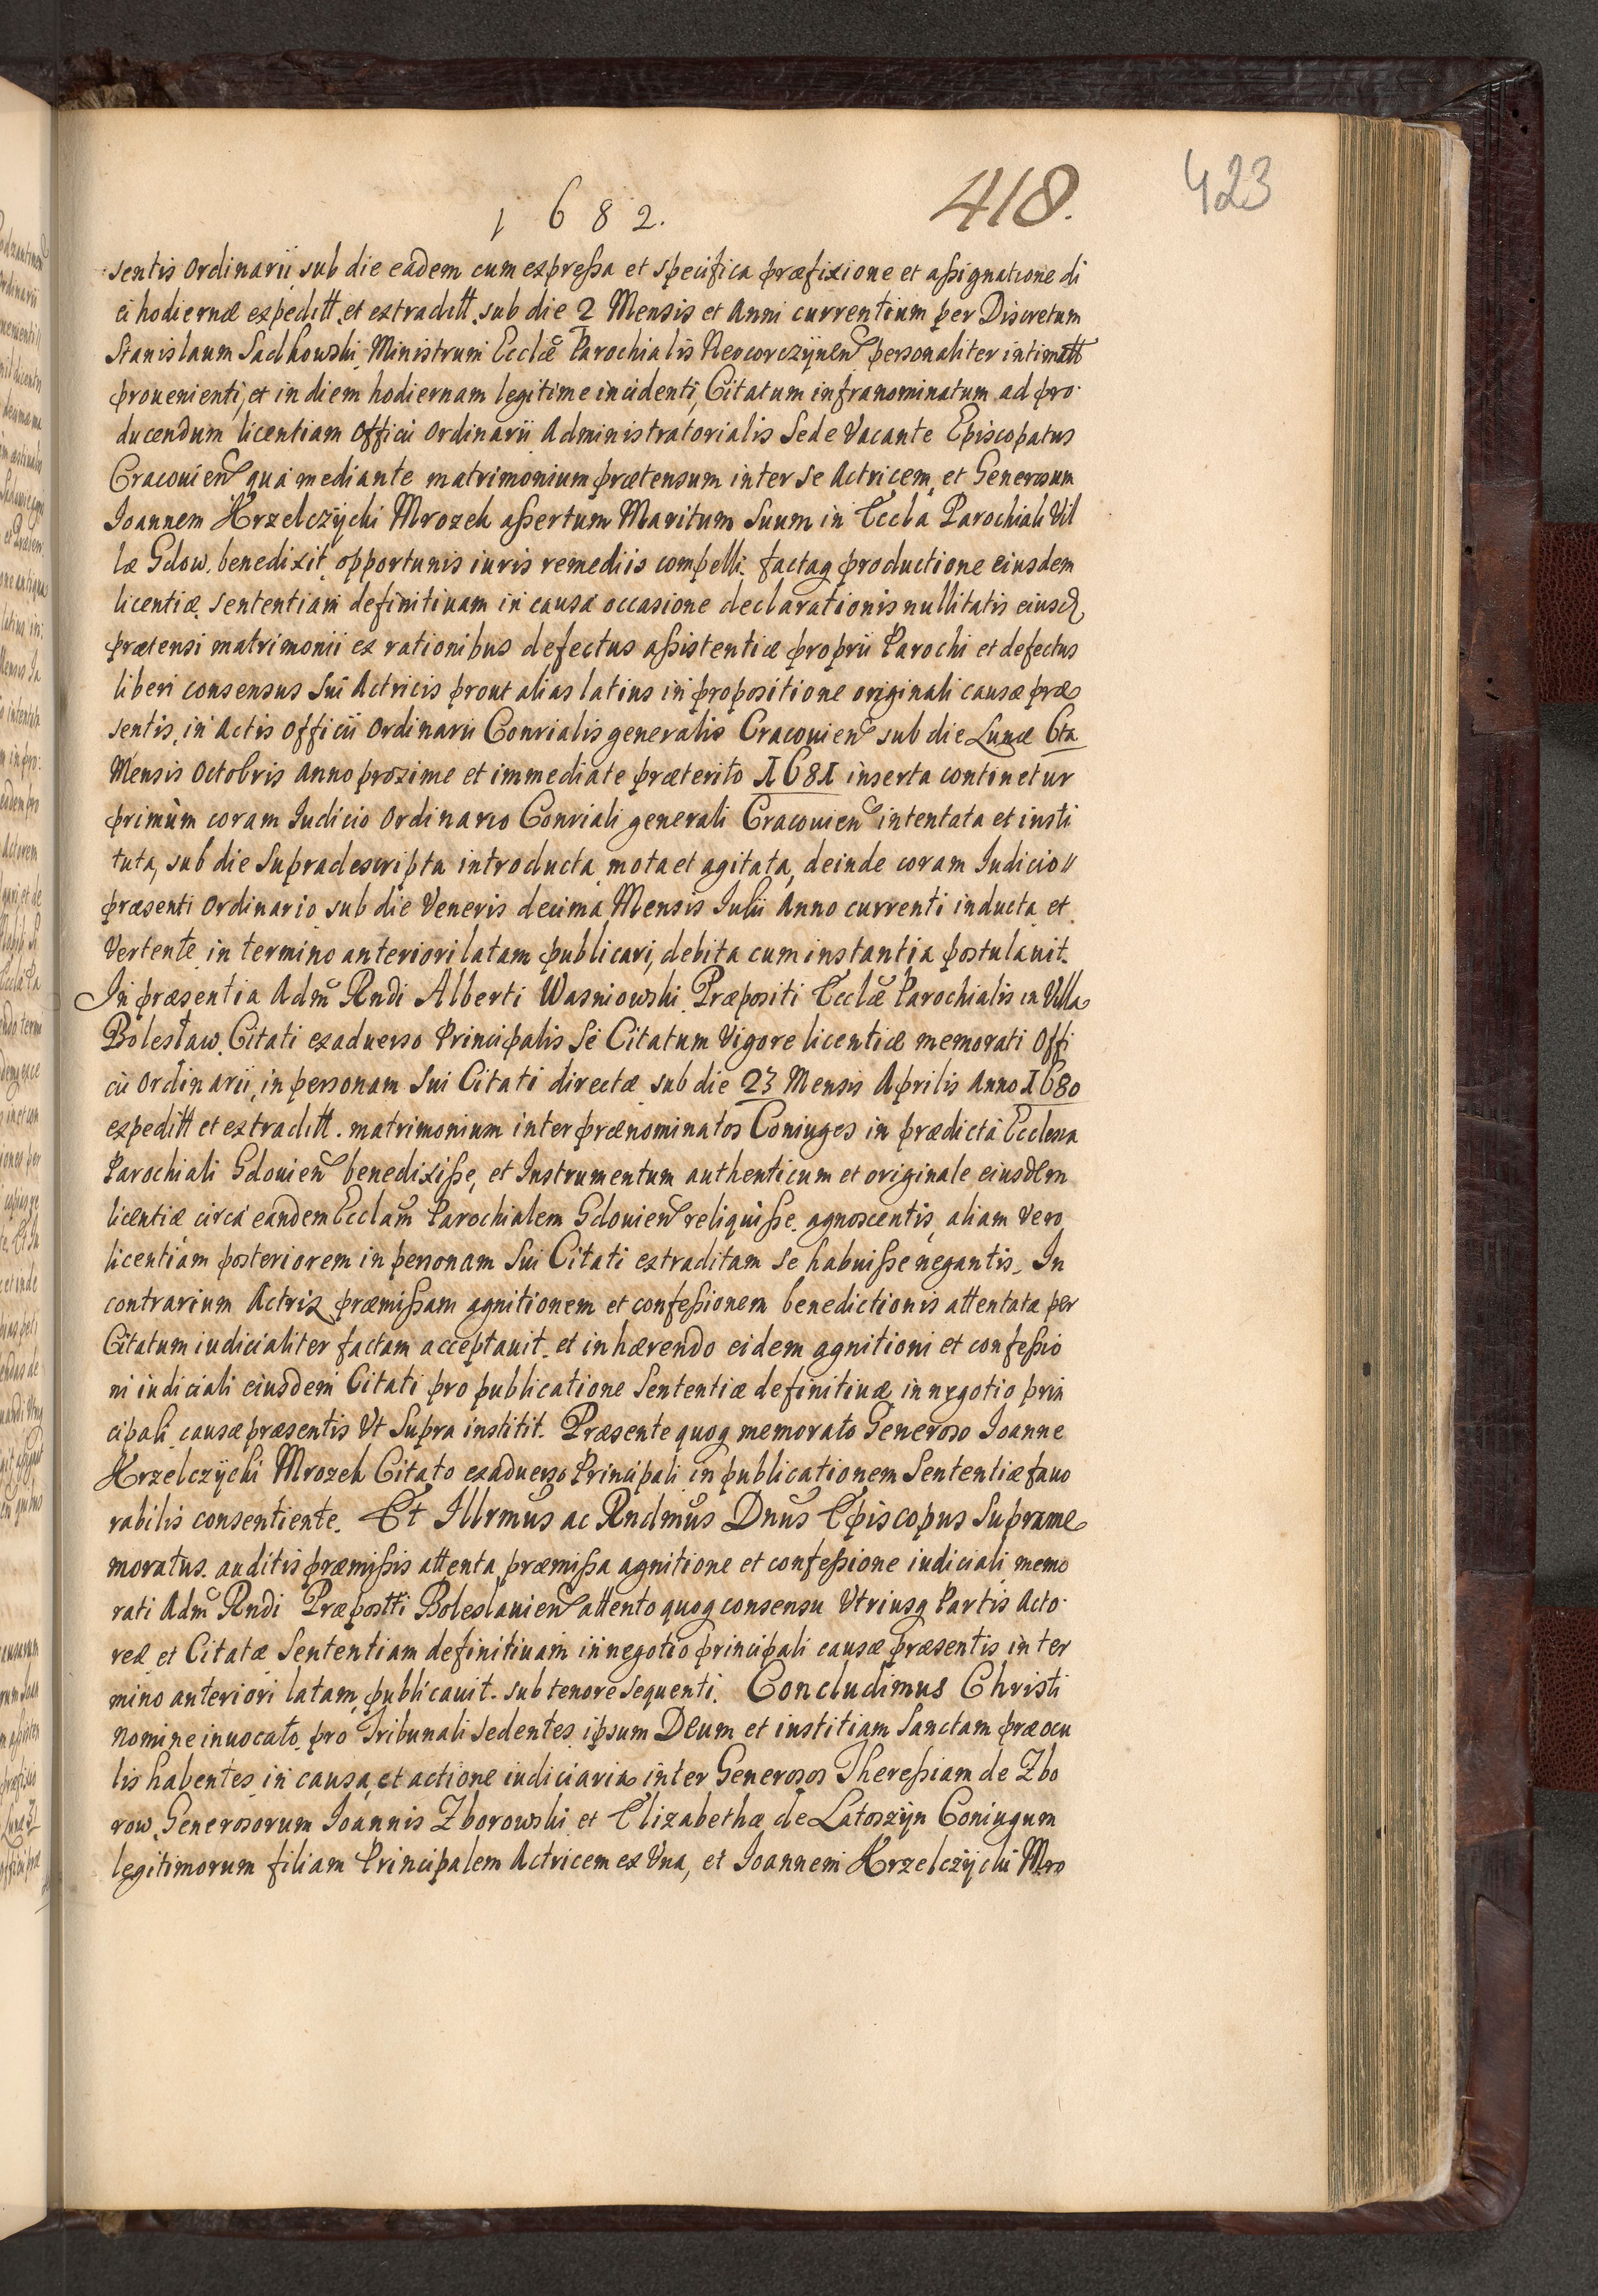 1682.
418.
423
sentis Ordinarii sub die eadem cum expressa et specifica præfixione et assignatione di
ei hodiernæ expeditt. et extraditt. sub die 2 Mensis et Anni currentium per Discretum
Stanislaum Sadkowski Ministrum Ecclæ Parochialis Neocorczÿnen personaliter intimatt
prouenienti, et in diem hodiernam legitime incidenti, Citatum infranominatum ad pro
ducendum licentiam Officii Ordinarii Administratorialis Sede Vacante Episcopatus
Cracouien quá mediante matrimonium prætensum inter se Actricem, et Generosum
Ioannem Krzelczÿcki Mrozek assertum Maritum Suum in Eccla Parochiali Vil
læ Gdow, benedixit opportunis iuris remediis compelli. factaq productione eiusdem
licentiæ sententiam definitiuam in causá occasione declarationis nullitatis eiusd
prætensi matrimonii ex rationibus defectus assistentiæ proprii Parochi et defectus
liberi consensus Sui Actricis prout alias latius in propositione originali causæ præ
sentis, in Actis Officii Ordinarii Conrialis generalis Cracouien sub die Lunæ 6ta
Mensis Octobris Anno proxime et immediate præterito 1681 inserta continetur
primùm coram Iudicio Ordinario Conriali generali Cracouien intentata et insti
tuta, sub die Supradescripta introducta mota et agitata, deinde coram Iudicio //
præsenti Ordinario sub die Veneris decima Mensis Iulii Anno currenti inducta et
Vertente in termino anteriori latam publicari, debita cum instantia postulauit.
In præsentia Adm Rndi Alberti Wasniowski Præpositi Ecclæ Parochialis in Villa
Bolesław. Citati exaduerso Principalis Se Citatum Vigore licentiæ memorati Offi
cii Ordinarii, in personam Sui Citati directæ sub die 23 Mensis Aprilis Anno 1680
expeditt et extraditt. matrimonium inter prænominatos Coniuges in prædictá Ecclesia
Parochiali Gdouien benedixisse, et Instrumentum authenticum et originale eiusdem
licentiæ circá eandem Ecclam Parochialem Gdouien reliquisse agnoscentis, aliam vero
licentiam posteriorem in personam Sui Citati extraditam se habuisse negantis. In
contrarium Actrix præmissam agnitionem et confessionem benedictionis attentatæ per
Citatum iudicialiter factam acceptauit. et inhærendo eidem agnitioni et confessio
ni iudiciali eiusdem Citati pro publicatione Sententiæ definitiuæ in negotio prin
cipali causæ præsentis Vt Supra institit. Præsente quoq memorato Generoso Ioanne
Krzelczÿcki Mrozek Citato exaduerso Principali in publicationem Sententiæ fauo
rabilis consentiente. Et Illrmus ac Rndmus Dnus Episcopus Suprame
moratus. auditis præmissis attenta præmissa agnitione et confessione iudiciali memo
rati Adm Rndi Præpostti Boleslauien attento quoq consensu Vtriusq Partis Acto
reæ et Citatæ Sententiam definitiuam in negotio principali causæ præsentis in ter
mino anteriori latam, publicauit. sub tenore sequenti. Concludimus Christi
Nomine inuocato, pro Tribunali Sedentes ipsum Deum et iustitiam Sanctam præ ocu
lis habentes in causa, et actione iudiciaria inter Generosos Theressiam de Zbo
row, Generosorum Ioannis Zborowski et Elizabethæ de Latoszÿn Coniugum
legitimorum filiam Principalem Actricem ex Vna, et Ioannem Krzelczÿcki Mro